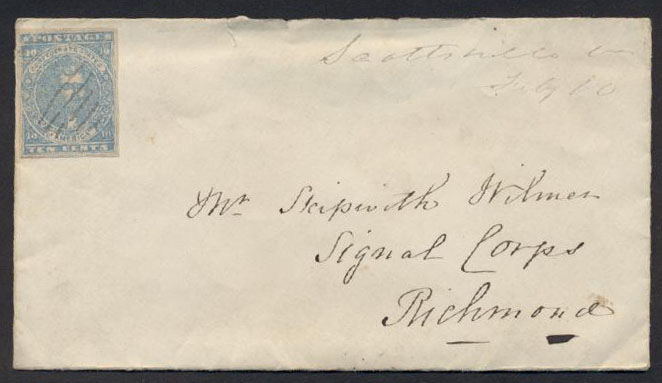 POSTAGE
10 10
CONFEDERATE STATES
OF AMERICA
10 10
TEN CENTS
Scottsville Va
July 10
Mr Skipwith Wilmer
Signal Corps
Richmond